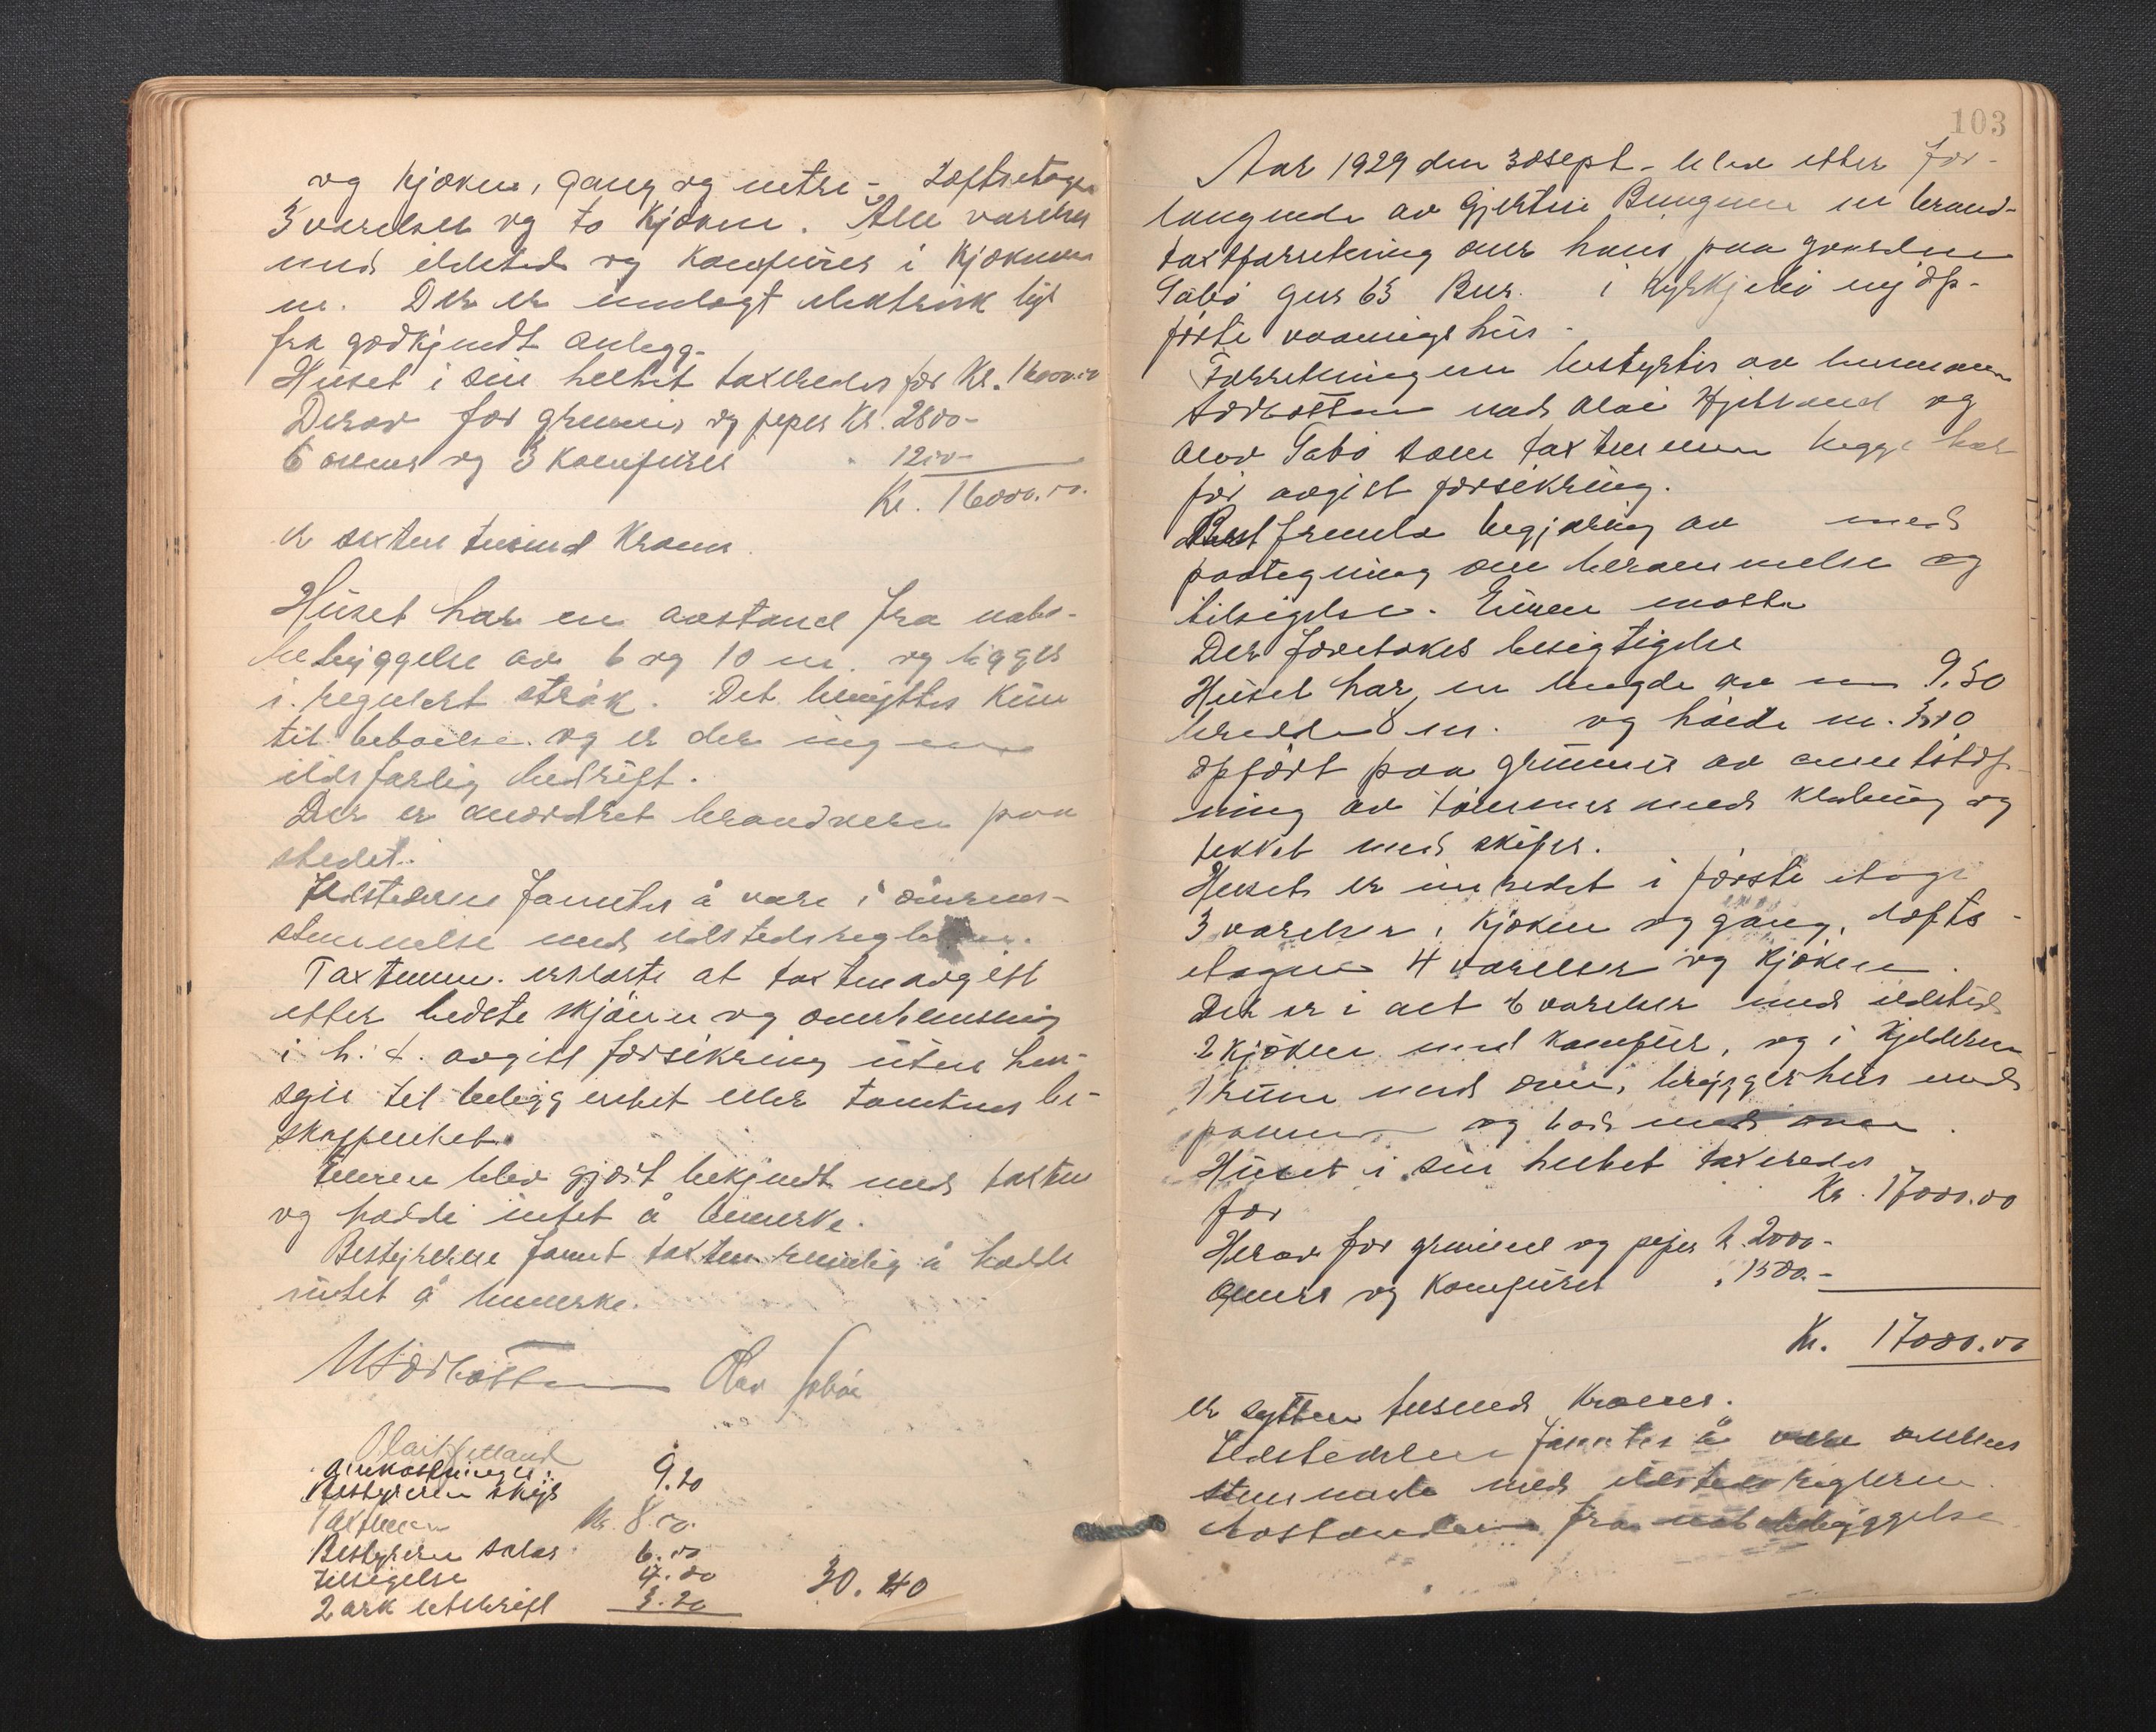 og kjøken, gang og entre - Loftsetagen
3 værelser og to kjøken. Alle værelser
med ildsted og komfurer i kjøkenen
ne. Der er innlagt elektrisk lys
fra godkjendt anlegg.
Huset i sin helhet taxeredes for Kr. 16000.00
Derav for grunmur og peper Kr. 2800-
6 ovner og 3 komfurer " 1200-
Kr. 16000.00.
er sexten tusind Kroner.
Huset har en avstand fra nabo-
bebyggelse av 6 og 10 m. og ligger
i regulert strøk. Det benyttes kun
til beboelse og er der ingen
ildsfarlig bedrift.
Der er anordnet brandvern paa
stedet.
Ildstederne fantes å være i överens-
stemmelse med ildstedsreglerne.
Taxtmenn. erklærte at taxten avgitt
efter bedste skjønn og overbevisning
i h. t. avgitt forsikring uten hen-
syn til beliggenhet eller tomtens be-
skaffenhet.
Eieren blev gjort bekjendt med taxten
og hadde intet å bemerke.
Bestyreren fant taxten rimelig å hadde
intet å bemerke.
Olav Tabö
Olai Hjelland
Omkostninger:
Bestyreren skys 9.20
Taxtmenn Kr. 8.00.
Bestyreren salær 6.00
Tilsigelse 4.00
2 ark utskrift 3.20 30.40
103
Aar 1929 den 30 sept. blev etter for-
langende av Gjertine en brand-
taxtforretning over hans paa gaarden
Tabö gnr 63 Bnr. i Kyrkjebö nyop-
förte vaaningshus.
Forretningen bestyrtes av lensmann
med Olai Hjelland og
Olav Tabö som taxtmenn begge har
för avgitt forsikring.
Best fremla begjæring av med
paategning om berammelse og
tilsigelse. Eieren møtte
Der foretokes besigtigelse
Huset har en lengde av m 9.50
bredde 8 m. og höide m.
opfört paa grunmur av cementstöp-
ning av tömmer med kledning og
tekket med skifer.
Huset er innredet i förste etage
3 værelser, kjøken og gang, lofts-
etagen 4 værelser og kjøken.
Det er i alt 6 værelser med ildsted
2 kjøken med komfur, og i kjelderen
1 rum med ovn, bryggerhus med
panne og bad med ovn.
Huset i sin helhet taxeredes
for Kr. 17000.00
Herav for grunmur og peper k. 2000-
Ovner og komfurer " 1500.-
Kr. 17000.00
er sytten tusend Kroner.
Ildstederne fantes å være overens
stemmende med ildstedsreglerne.
Avstanden fra nabobebyggelse